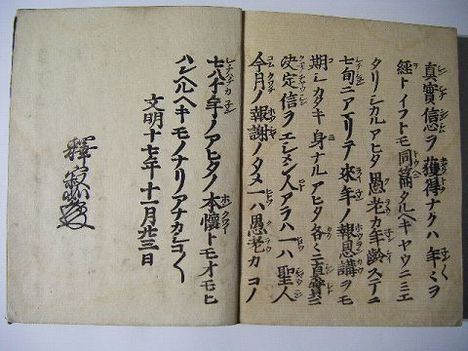 真實信心ヲ獲得ナクハ年〱ヲ
經トイフトモ同篇タルヘキヤウニミエ
タリシカルアヒダ愚老カ年齡ステニ
七旬ニアマリテ來年ノ報恩講ヲモ
期シカタキ身ナルアヒダ各〻ニ真實ニ
決定信ヲエシメン人アラハ一ハ聖人
今月ノ報謝ノタメ一ハ愚老カコノ
七八ケ年ノアヒタノ本懷トモオモヒ
ハンヘルヘキモノナリアナカシコ〱
文明十七年十一月廿三日
釋